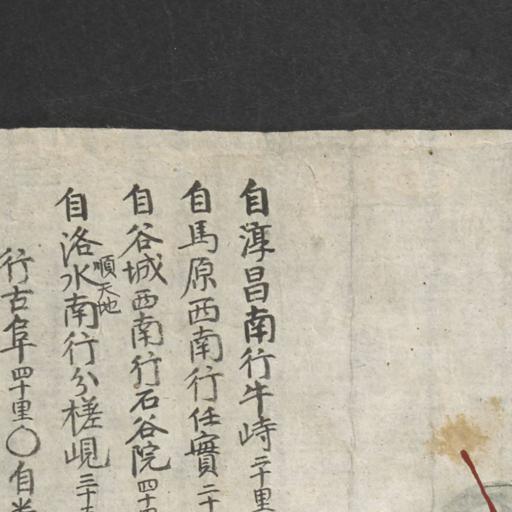 自淳昌南行牛峙二十里
自馬原西南行任實二十
自谷城西南行石谷院四十里
自洛水南行分槎峴三十
順天地
行古阜四十里〇自